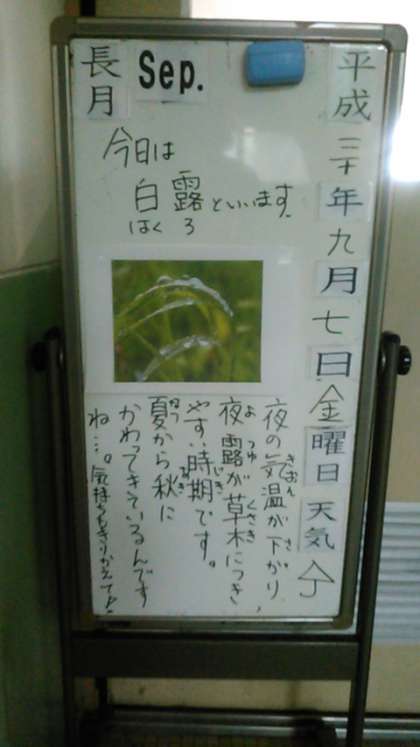 平成三十年九月七日金曜日 天気
長月
Sep.
今日は
白露といいます。
はくろ
夜の気温が下がり、
きおん さ
夜露が草木につき
よつゆ くさき
やすい時期です。
じき
夏から秋に
なつ あき
かわってきているんです
ね…。気持ちもきりかえて